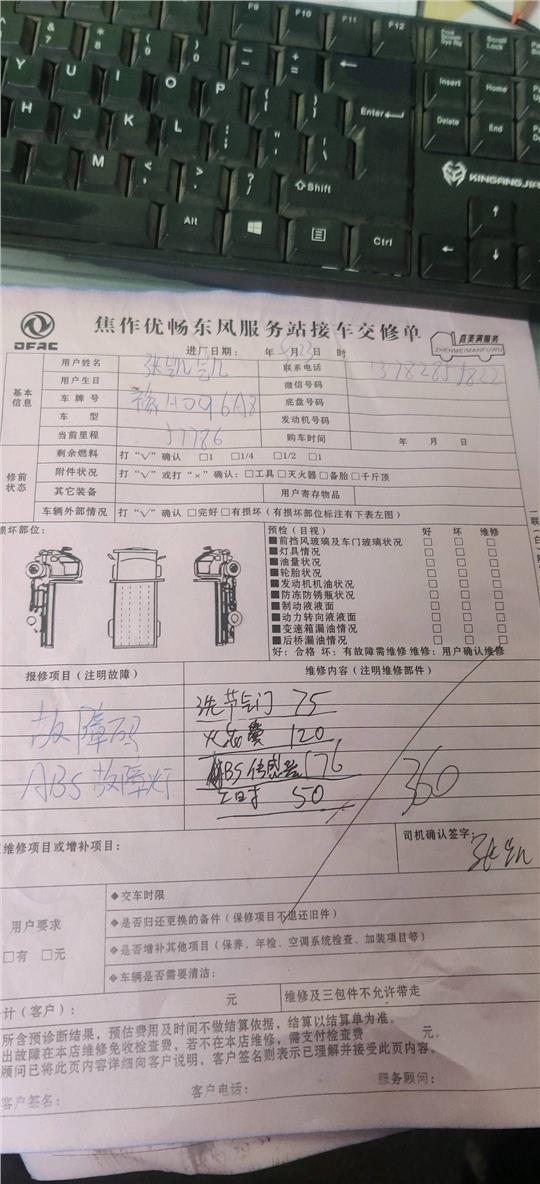 F9 F10 F11 F12
Print Screen Sys Rq
Scroll Lock
Insert Home
Enter
Delete End
Y U I O P
H J K L
M
Shift
KINGANGJIA
Alt
Ctrl
DFAC
焦作优畅东风服务站接车交修单
真美满服务
ZHENMEIMANFUWU
进厂日期: 年 月23日 时
基本信息
用户姓名 张凯凯 联系电话
用户生日 微信号码
车牌号 底盘号码
车型 发动机号码
当前里程 57786 购车时间 年 月 日
修前状态
剩余燃料 打“√”确认 □1 □1/4 □1/2 □1
附件状况 打“√”或打“×”确认:□工具□灭火器□备胎□千斤顶
其它装备 用户寄存物品
车辆外部情况 打“√”确认 □完好 □有损坏(有损坏部位标注有下表左图)
损坏部位:
预检(目视) 好 坏 维修
■前挡风玻璃及车门玻璃状况 □ □ □
■灯具情况 □ □ □
■油量状况 □ □ □
■轮胎状况 □ □ □
■发动机机油状况 □ □ □
■防冻防锈瓶状况 □ □ □
■制动液液面 □ □ □
■动力转向液液面 □ □ □
■变速箱漏油情况 □ □ □
■后桥漏油情况 □ □ □
好:合格 坏:有故障需维修 维修:用户确认维修
报修项目(注明故障) 维修内容(注明维修部件)
故障码
ABS故障灯
洗节气门 75
120
ABS传感器 176
工时 50
360
维修项目或增补项目:
司机确认签字:
用户要求
□有 □无
◆交车时限
◆是否归还更换的备件(保修项目不退还旧件)
◆是否增补其他项目(保养、年检、空调系统检查、加装项目等)
◆车辆是否需要清洁:
计(客户): 元 维修及三包件不允许带走
所含预诊断结果,预估费用及时间不做结算依据,结算以结算单为准。
出故障在本店维修免收检查费,若不在本店维修,需支付检查费 元。
顾问已将此页内容详细向客户说明,客户签名则表示已理解并接受此页内容。
客户签名: 客户电话: 服务顾问: